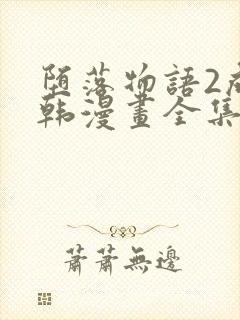 堕落物語2
韩漫畫全集
蕭蕭無邊